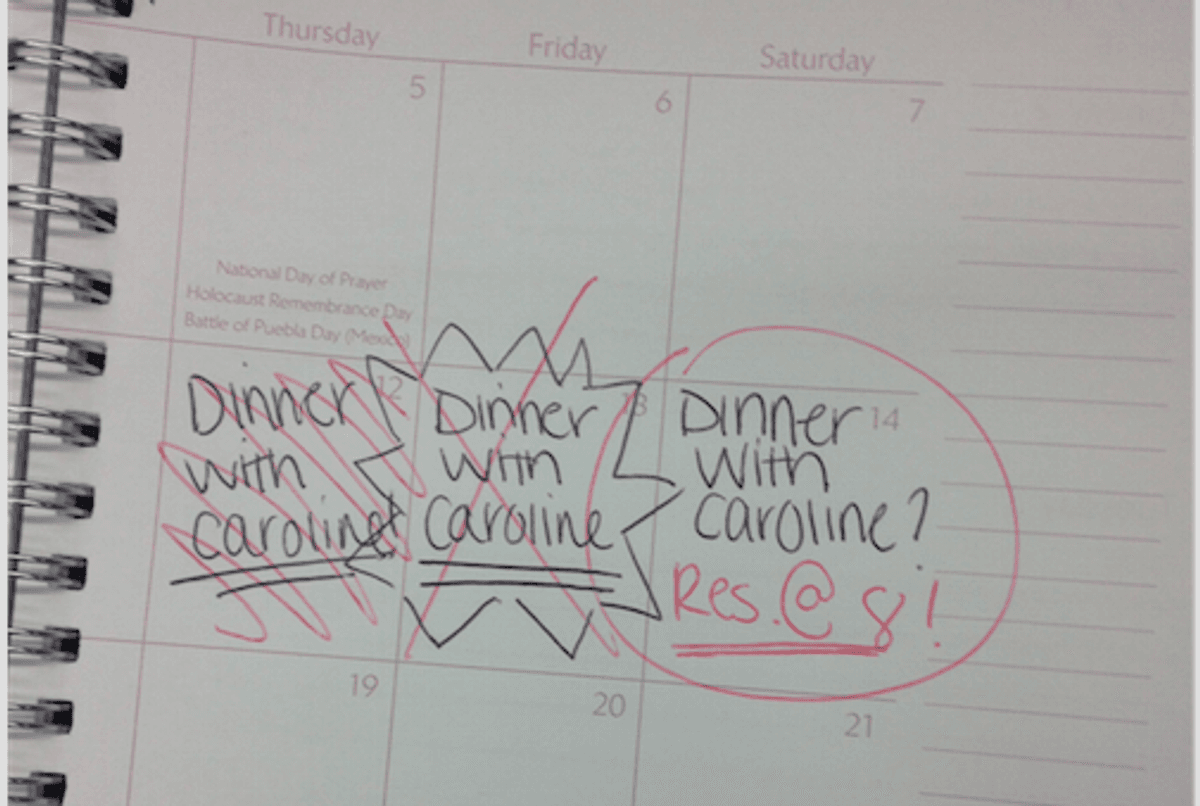 Thursday Friday Saturday
5 6 7
National Day of Prayer
Holocaust Remembrance Day
Battle of Puebla Day (Mexico)
12 13 14
Dinner
with
caroline
Dinner
with
caroline
Dinner
with
caroline?
Res. @ 8!
19 20 21